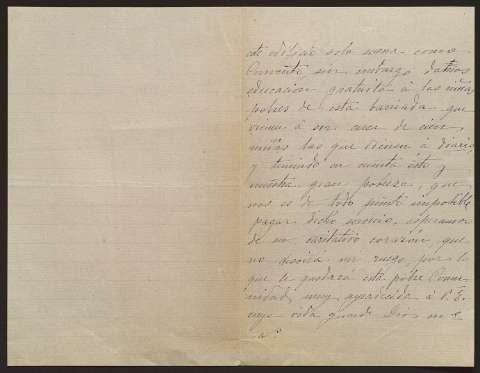 este edificio solo suena como
Convento sin embargo damos
educación gratuita á las niñas
pobres de esta barriada que
vienen á ser cerca de cien
niñas las que vienen á diario,
y teniendo en cuenta esto y
nuestra gran pobreza, que
nos es de todo punto imposible
pagar dicho, esperamos
de su caritativo corazón que
no un ruego, por lo
que le quedará esta pobre Comu-
nidad muy agradecida á V. E.
cuya vida guarde Dios m. s.
a. s.